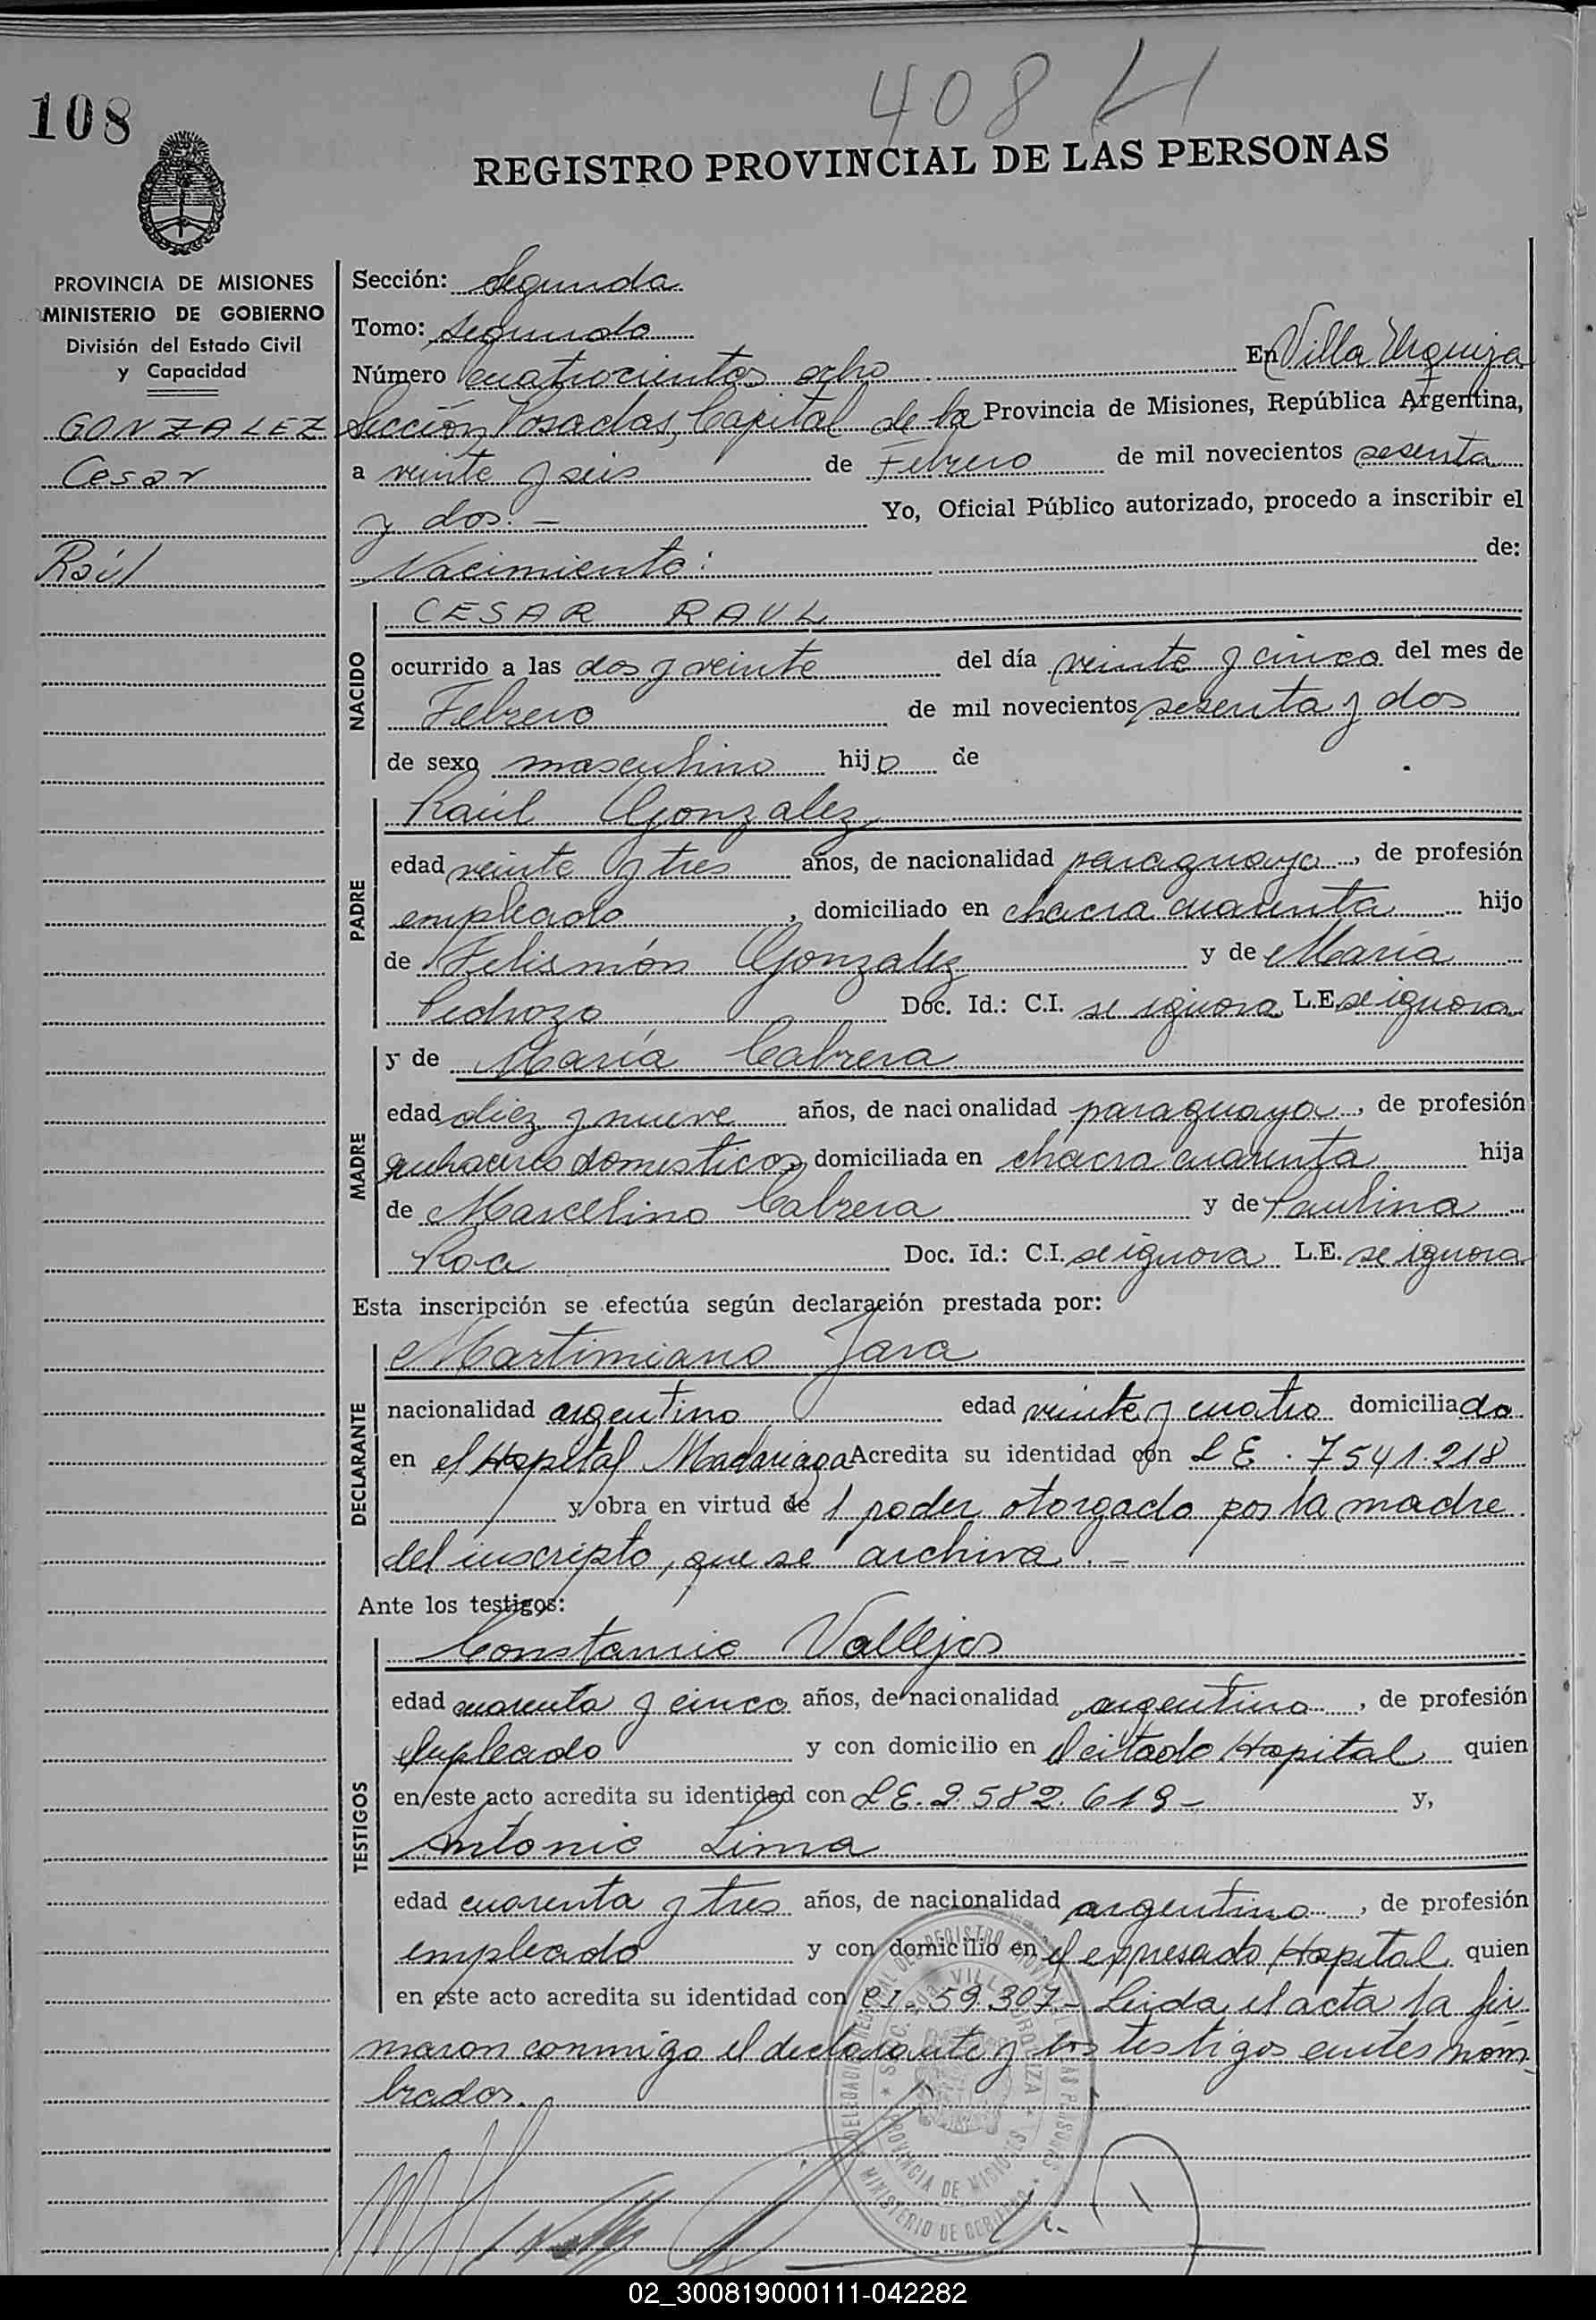 408
108
REGISTRO PROVINCIAL DE LAS PERSONAS
PROVINCIA DE MISIONES
MINISTERIO DE GOBIERNO
División del Estado Civil
y Capacidad
GONZALEZ
Cesar
Raúl
Sección: Segunda
Tomo: Segundo
Número cuatrocientos ocho En Villa Urquiza
Sección Posadas, Capital de la Provincia de Misiones, República Argentina,
a veinte y seis de Febrero de mil novecientos sesenta
y dos.- Yo, Oficial Público autorizado, procedo a inscribir el
Nacimiento: de:
NACIDO
CESAR RAUL
ocurrido a las dos y veinte del día veinte y cinco del mes de
Febrero de mil novecientos sesenta y dos
de sexo masculino hijo de
PADRE
Raúl Gonzalez
edad veinte y tres años, de nacionalidad paraguaya, de profesión
empleado, domiciliado en chacra cuarenta hijo
de Felismón Gonzalez y de María
Pedrozo Doc. Id.: C.I. se ignora L.E. se ignora
MADRE
y de María Cabrera
edad diez y nueve años, de nacionalidad paraguaya, de profesión
quehaceres domesticos, domiciliada en chacra cuarenta hija
de Marcelino Cabrera y de Paulina
Roa Doc. Id.: C.I. se ignora L.E. se ignora
Esta inscripción se efectúa según declaración prestada por:
DECLARANTE
Martimiano Jara
nacionalidad argentino edad veinte y cuatro domiciliado
en el Hospital Madariaga Acredita su identidad con L E . 7541.218
y obra en virtud de 1 poder otorgado por la madre
del inscripto, que se archiva.-
Ante los testigos:
TESTIGOS
Constancio Vallejos
edad cuarenta y cinco años, de nacionalidad argentino, de profesión
empleado y con domicilio en el citado Hospital quien
en este acto acredita su identidad con L E. 2.582.619- y,
Antonio Lima
edad cuarenta y tres años, de nacionalidad argentino, de profesión
empleado y con domicilio en el expresado Hospital quien
en este acto acredita su identidad con C I. 59.307- Leida el acta la fir-
maron conmigo el declarante y los testigos antes nom-
brados.
02_300819000111-042282